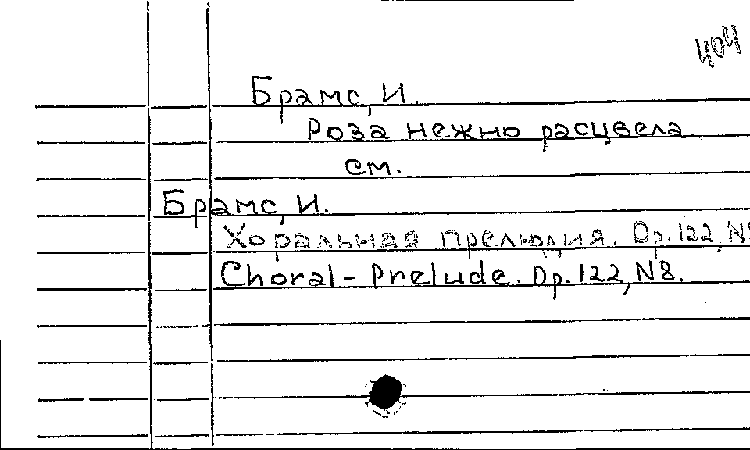 404
Брамс, И.
Роза нежно расцвела
см.
Брамс, И.
Хоральная прелюдия. Op.122, N8
Choral-Prelude. Op.122, N8.